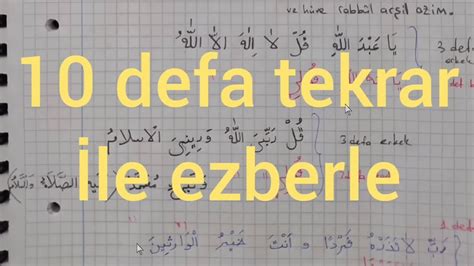 ve hüve rabbül arşil azim.
يَا عَبْدَ اللّٰهِ قُلْ لَا اِلٰهَ اِلَّا اللّٰهُ 3 defa
erkek
10 defa tekrar
قُلْ رَبِّىَ اللّٰهُ وَدِينِىَ الْاِسْلَامُ
3 defa erkek
İle ezberle
الصَّلَاةُ وَالسَّلَامُ)
رَبِّ لَا تَذَرْنِى فَرْدًا وَ اَنْتَ خَيْرُ الْوَارِثِينَ